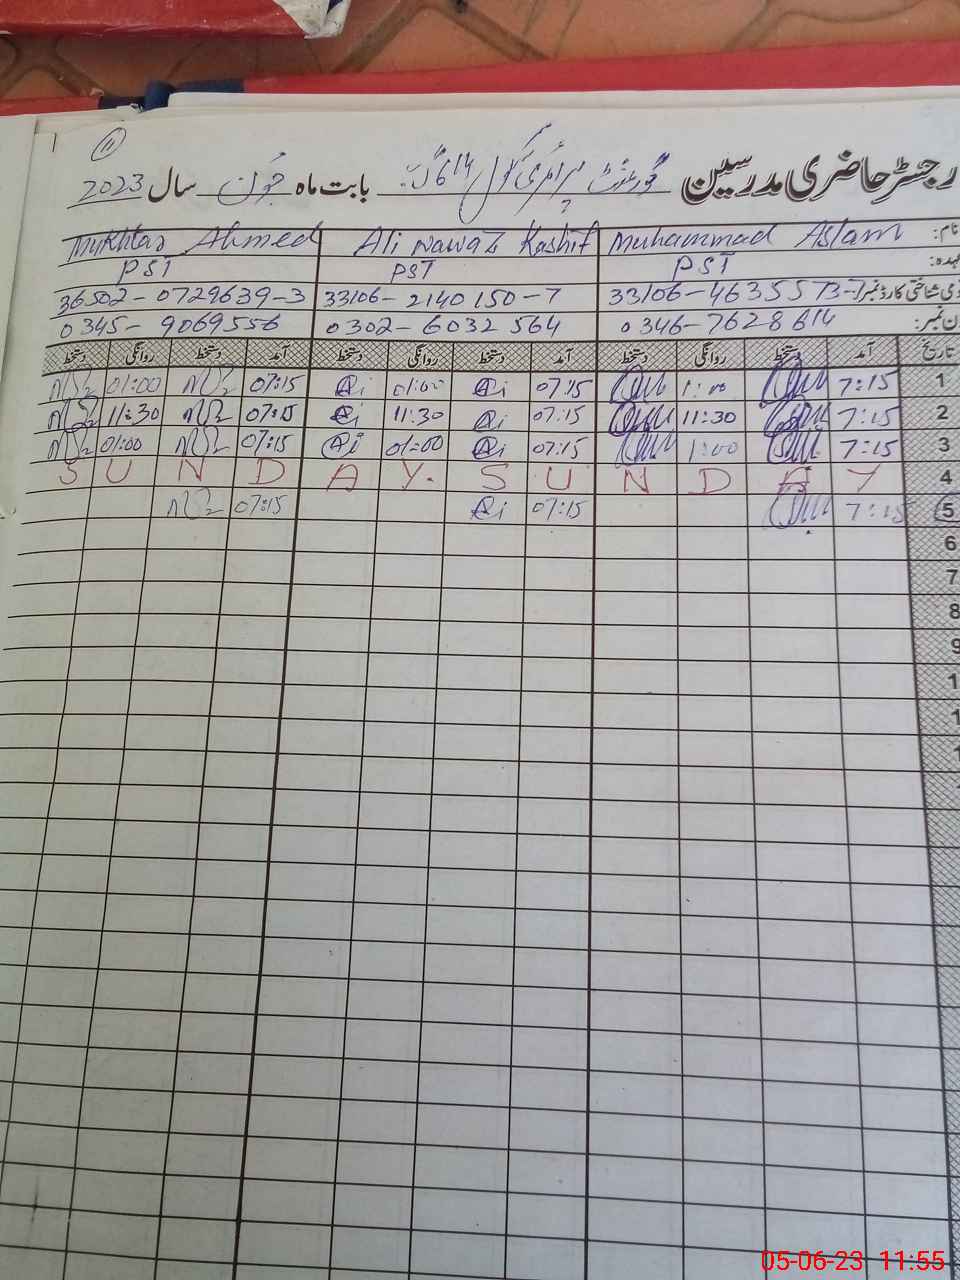 11
رجسٹر حاضری مدرسین گورنمنٹ پرائمری سکول 614 گ ب بابت ماہ جون سال 2023
نام: Muhammad Aslam Ali Nawaz Kashif Mukhtar Ahmed
عہدہ: PST PST PST
قومی شناختی کارڈ نمبر: 33106-4635573-1 33106-2140150-7 36502-0729639-3
فون نمبر: 0346-7628614 0302-6032564 0345-9069556
تاریخ آمد دستخط روانگی دستخط آمد دستخط روانگی دستخط آمد دستخط روانگی دستخط
1 7:15 1:00 07:15 01:00 07:15 01:00
2 7:15 11:30 07:15 11:30 07:15 11:30
3 7:15 1:00 07:15 01:00 07:15 01:00
4 SUNDAY. SUNDAY
5 7:15 07:15 07:15
6
7
8
9
1
1
1
05-06-23 11:55